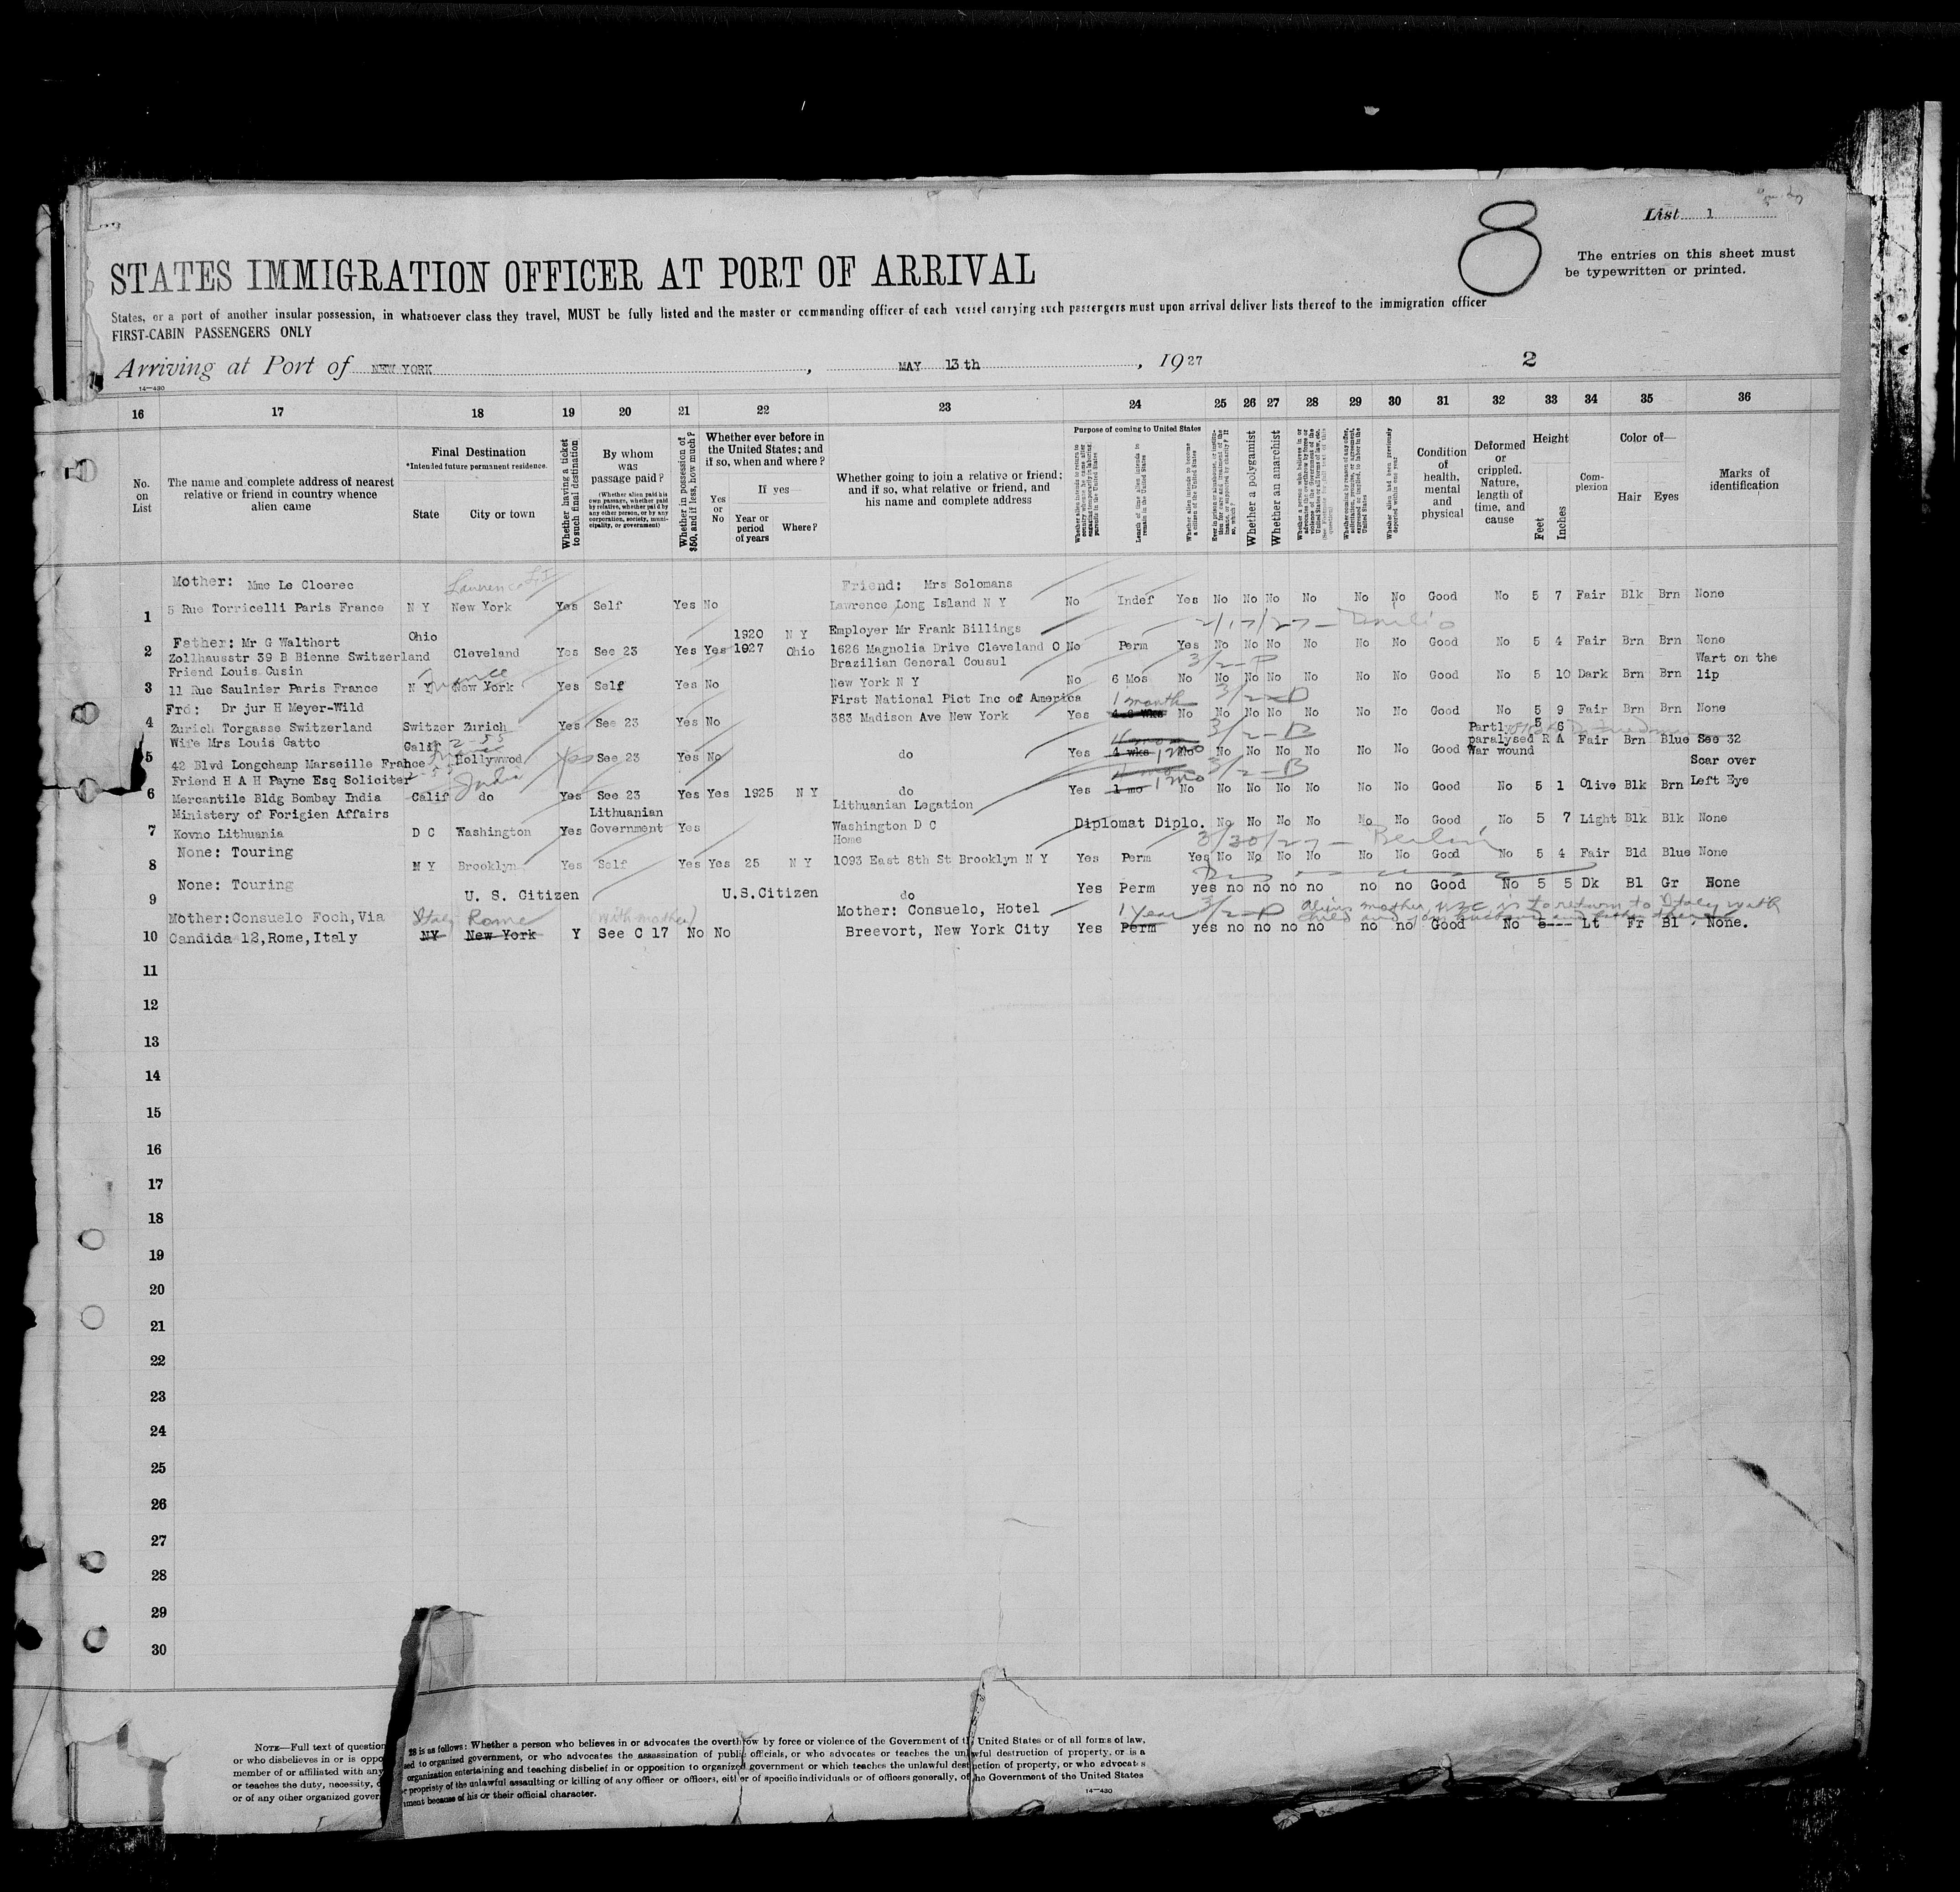 List 1
8
The entries on this sheet must
be typewritten or printed.
STATES IMMIGRATION OFFICER AT PORT OF ARRIVAL
States, or a port of another insular possession, in whatsoever class they travel, MUST be fully listed and the master or commanding officer of each vessel carrying such passengers must upon arrival deliver lists thereof to the immigration officer
FIRST-CABIN PASSENGERS ONLY
Arriving at Port of NEW YORK, MAY 13th, 1927
2
14—430
16 17 18 19 20 21 22 23 24 25 26 27 28 29 30 31 32 33 34 35 36
No. on List
The name and complete address of nearest relative or friend in country whence alien came
Final Destination
*Intended future permanent residence.
State City or town
Whether having a ticket to such final destination
By whom was passage paid?
(Whether alien paid his own passage, whether paid by relative, whether paid by any other person, or by any corporation, society, municipality, or government)
Whether in possession of $50, and if less, how much?
Whether ever before in the United States; and if so, when and where?
Yes or No
If yes—
Year or period of years
Where?
Whether going to join a relative or friend; and if so, what relative or friend, and his name and complete address
Purpose of coming to United States
Length of time alien intends to remain in the United States
Whether alien intends to become a citizen of the United States
Whether a polygamist
Whether an anarchist
Condition of health, mental and physical
Deformed or crippled. Nature, length of time, and cause
Height
Feet Inches
Complexion
Color of—
Hair Eyes
Marks of identification
Mother: Mme Le Cloerec Lawrence L I Friend: Mrs Solomans
1 5 Rue Torricelli Paris France N Y New York Yes Self Yes No Lawrence Long Island N Y No Indef Yes No No No No No No Good No 5 7 Fair Blk Brn None
Ohio 1920 N Y Employer Mr Frank Billings 2/17/27
2 Father: Mr G Walthert Cleveland Yes See 23 Yes Yes 1927 Ohio 1626 Magnolia Drive Cleveland O No Perm Yes No No No No No No Good No 5 4 Fair Brn Brn None
Zollhausstr 39 B Bienne Switzerland Brazilian General Cousul 3/2-P Wart on the
Friend Louis Cusin France
3 11 Rue Saulnier Paris France N Y New York Yes Self Yes No New York N Y No 6 Mos No No No No No No No Good No 5 10 Dark Brn Brn lip
Frd: Dr jur H Meyer-Wild First National Pict Inc of America 1 month 3/2-D
4 Zurich Torgasse Switzerland Switzer Zurich Yes See 23 Yes No 383 Madison Ave New York Yes No No No No No No No Good No 5 9 Fair Brn Brn None
Wife Mrs Louis Gatto Calif 2-55 3/2-B Partly paralysed R A War wound 5 6
5 42 Blvd Longchamp Marseille France Hollywood Yes See 23 Yes No do Yes 4 wks 1 mo No No No No No No No Good Fair Brn Blue See 32
Friend H A H Payne Esq Soliciter India 3/2-B Scar over
6 Mercantile Bldg Bombay India Calif do Yes See 23 Yes Yes 1925 N Y do Yes 1 mo 1 mo No No No No No No No Good No 5 1 Olive Blk Brn Left Eye
Ministery of Forigien Affairs Lithuanian Lithuanian Legation
7 Kovno Lithuania D C Washington Yes Government Yes Washington D C Diplomat Diplo. No No No No No No Good No 5 7 Light Blk Blk None
None: Touring Home 3/30/27 - Berlin
8 N Y Brooklyn Yes Self Yes Yes 25 N Y 1093 East 8th St Brooklyn N Y Yes Perm Yes No No No No No No Good No 5 4 Fair Bld Blue None
None: Touring
9 U. S. Citizen U.S.Citizen do Yes Perm yes no no no no no no Good No 5 5 Dk Bl Gr None
Mother:Consuelo Foch,Via Italy Rome (with mother) Mother: Consuelo, Hotel 1 Year 3/2-P alien mother, is to return to Italy with
child and join husband and father there
10 Candida 12,Rome,Italy NY New York Y See C 17 No No Breevort, New York City Yes Perm yes no no no no no no Good No Lt Fr Bl None.
11
12
13
14
15
16
17
18
19
20
21
22
23
24
25
26
27
28
29
30
NOTE—Full text of question 28 is as follows: Whether a person who believes in or advocates the overthrow by force or violence of the Government of the United States or of all forms of law,
or who disbelieves in or is opposed to organized government, or who advocates the assassination of public officials, or who advocates or teaches the unlawful destruction of property, or is a
member of or affiliated with any organization entertaining and teaching disbelief in or opposition to organized government or which teaches the unlawful destruction of property, or who advocates
or teaches the duty, necessity, or propriety of the unlawful assaulting or killing of any officer or officers, either of specific individuals or of officers generally, of the Government of the United States
or of any other organized government because of his or their official character.
14—430